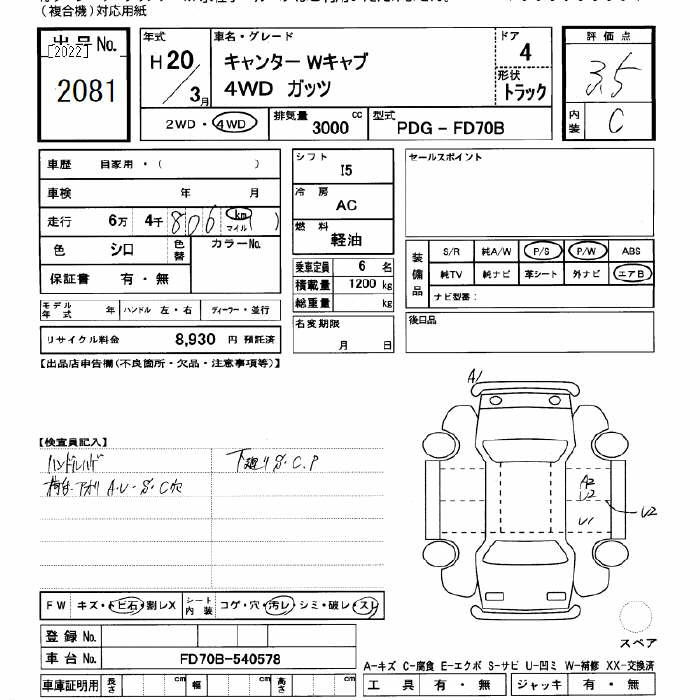 (複合機)対応用紙
出品No.
[2022]
2081
年式
H20/3月
車名・グレード
キャンター Wキャブ
4WD ガッツ
ドア
4
形状
トラック
2WD・4WD
排気量
3000 cc
型式
PDG - FD70B
評価点
3.5
内装
C
車歴 自家用・( )
車検 年 月
走行 6万 4千 806 km マイル ( )
色 シロ 色替 カラーNo.
保証書 有・無
モデル年式 年 ハンドル 左・右 ディーラー・並行
リサイクル料金 8,930 円 預託済
シフト
I5
冷房
AC
燃料
軽油
乗車定員 6 名
積載量 1200 kg
総重量 kg
名変期限
月 日
セールスポイント
装備品
S/R 純A/W P/S P/W ABS
純TV 純ナビ 革シート 外ナビ エアB
ナビ型番:
後日品
【出品店申告欄(不良箇所・欠品・注意事項等)】
【検査員記入】
ハンドルハゲ
荷台アオリ A・U・S・C穴
下廻りS・C・P
A1
A2
U2
U1
U2
スペア
FW キズ・トビ石・割レX シート内装 コゲ・穴・汚レ・シミ・破レ・スレ
登録No.
車台No. FD70B-540578
車庫証明用 長さ cm 幅 cm 高さ cm
A-キズ C-腐食 E-エクボ S-サビ U-凹ミ W-補修 XX-交換済
工具 有・無 ジャッキ 有・無